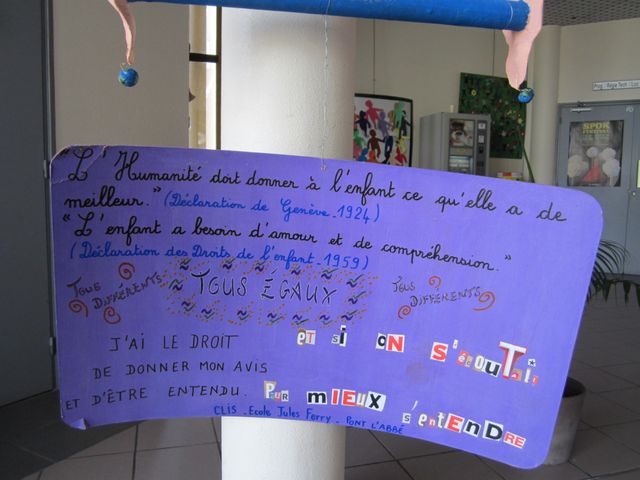 "L'Humanité doit donner à l'enfant ce qu'elle a de
meilleur." (Déclaration de Genève_1924)
"L'enfant a besoin d'amour et de compréhension."
(Déclaration des Droits de l'enfant_1959)
TOUS DIFFÉRENTS
TOUS ÉGAUX
TOUS DIFFÉRENTS
J'AI LE DROIT
DE DONNER MON AVIS
ET D'ÊTRE ENTENDU.
et si ON S'écouTait
Pour mIEUX s'entENDRE
CLIS_Ecole Jules Ferry_PONT L'ABBÉ
SPOK